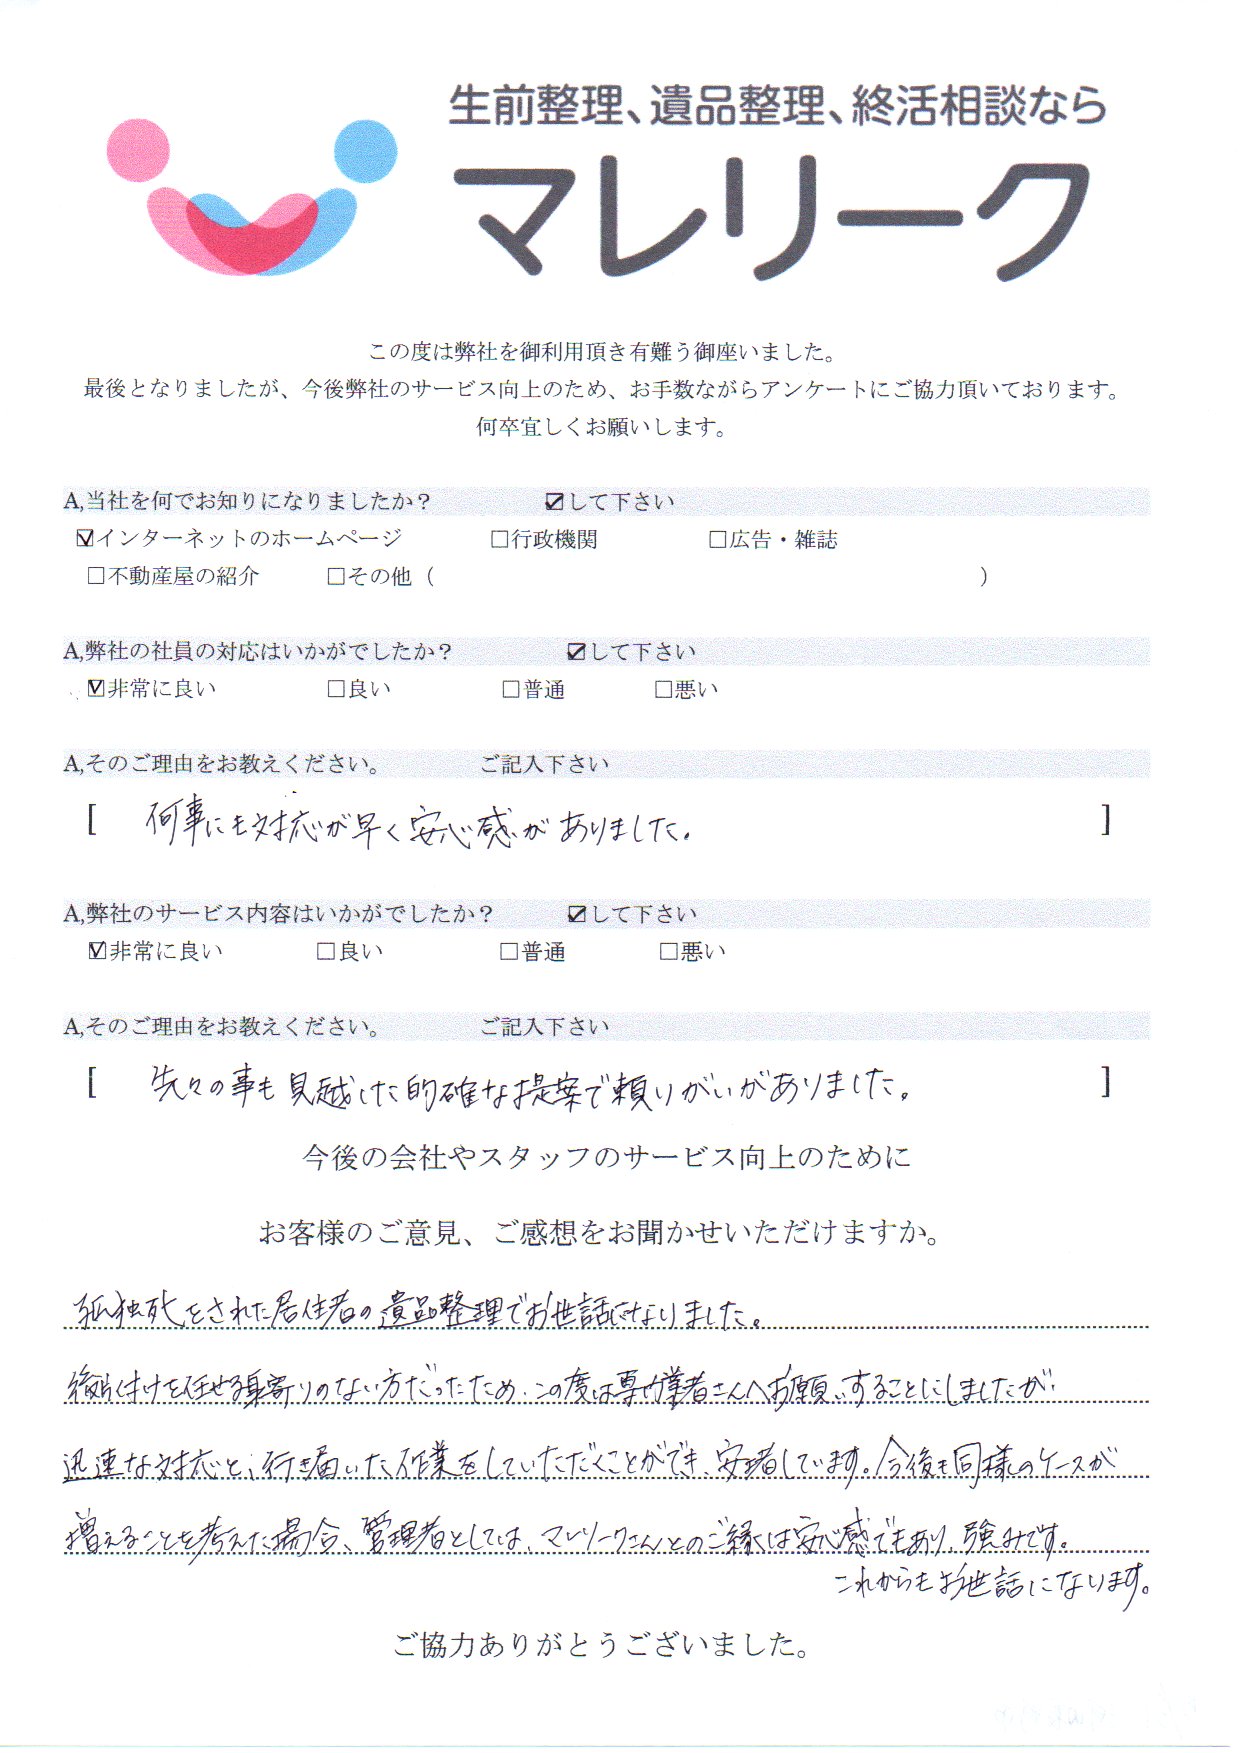 生前整理、遺品整理、終活相談なら
マレリーク
この度は弊社を御利用頂き有難う御座いました。
最後となりましたが、今後弊社のサービス向上のため、お手数ながらアンケートにご協力頂いております。
何卒宜しくお願いします。
A,当社を何でお知りになりましたか？ ☑して下さい
☑インターネットのホームページ □行政機関 □広告・雑誌
□不動産屋の紹介 □その他（ ）
A,弊社の社員の対応はいかがでしたか？ ☑して下さい
☑非常に良い □良い □普通 □悪い
A,そのご理由をお教えください。 ご記入下さい
[ 何事にも対応が早く安心感がありました。 ]
A,弊社のサービス内容はいかがでしたか？ ☑して下さい
☑非常に良い □良い □普通 □悪い
A,そのご理由をお教えください。 ご記入下さい
[ 先々の事も見越した的確な提案で頼りがいがありました。 ]
今後の会社やスタッフのサービス向上のために
お客様のご意見、ご感想をお聞かせいただけますか。
孤独死をされた居住者の遺品整理でお世話になりました。
後片付けを任せる身寄りのない方だったため、この度は専門業者さんへお願いすることにしましたが、
迅速な対応と、行き届いた作業をしていただくことができ、安堵しています。今後も同様のケースが
増えることを考えた場合、管理者としては、マレリークさんとのご縁は安心感でもあり、強みです。
これからもお世話になります。
ご協力ありがとうございました。